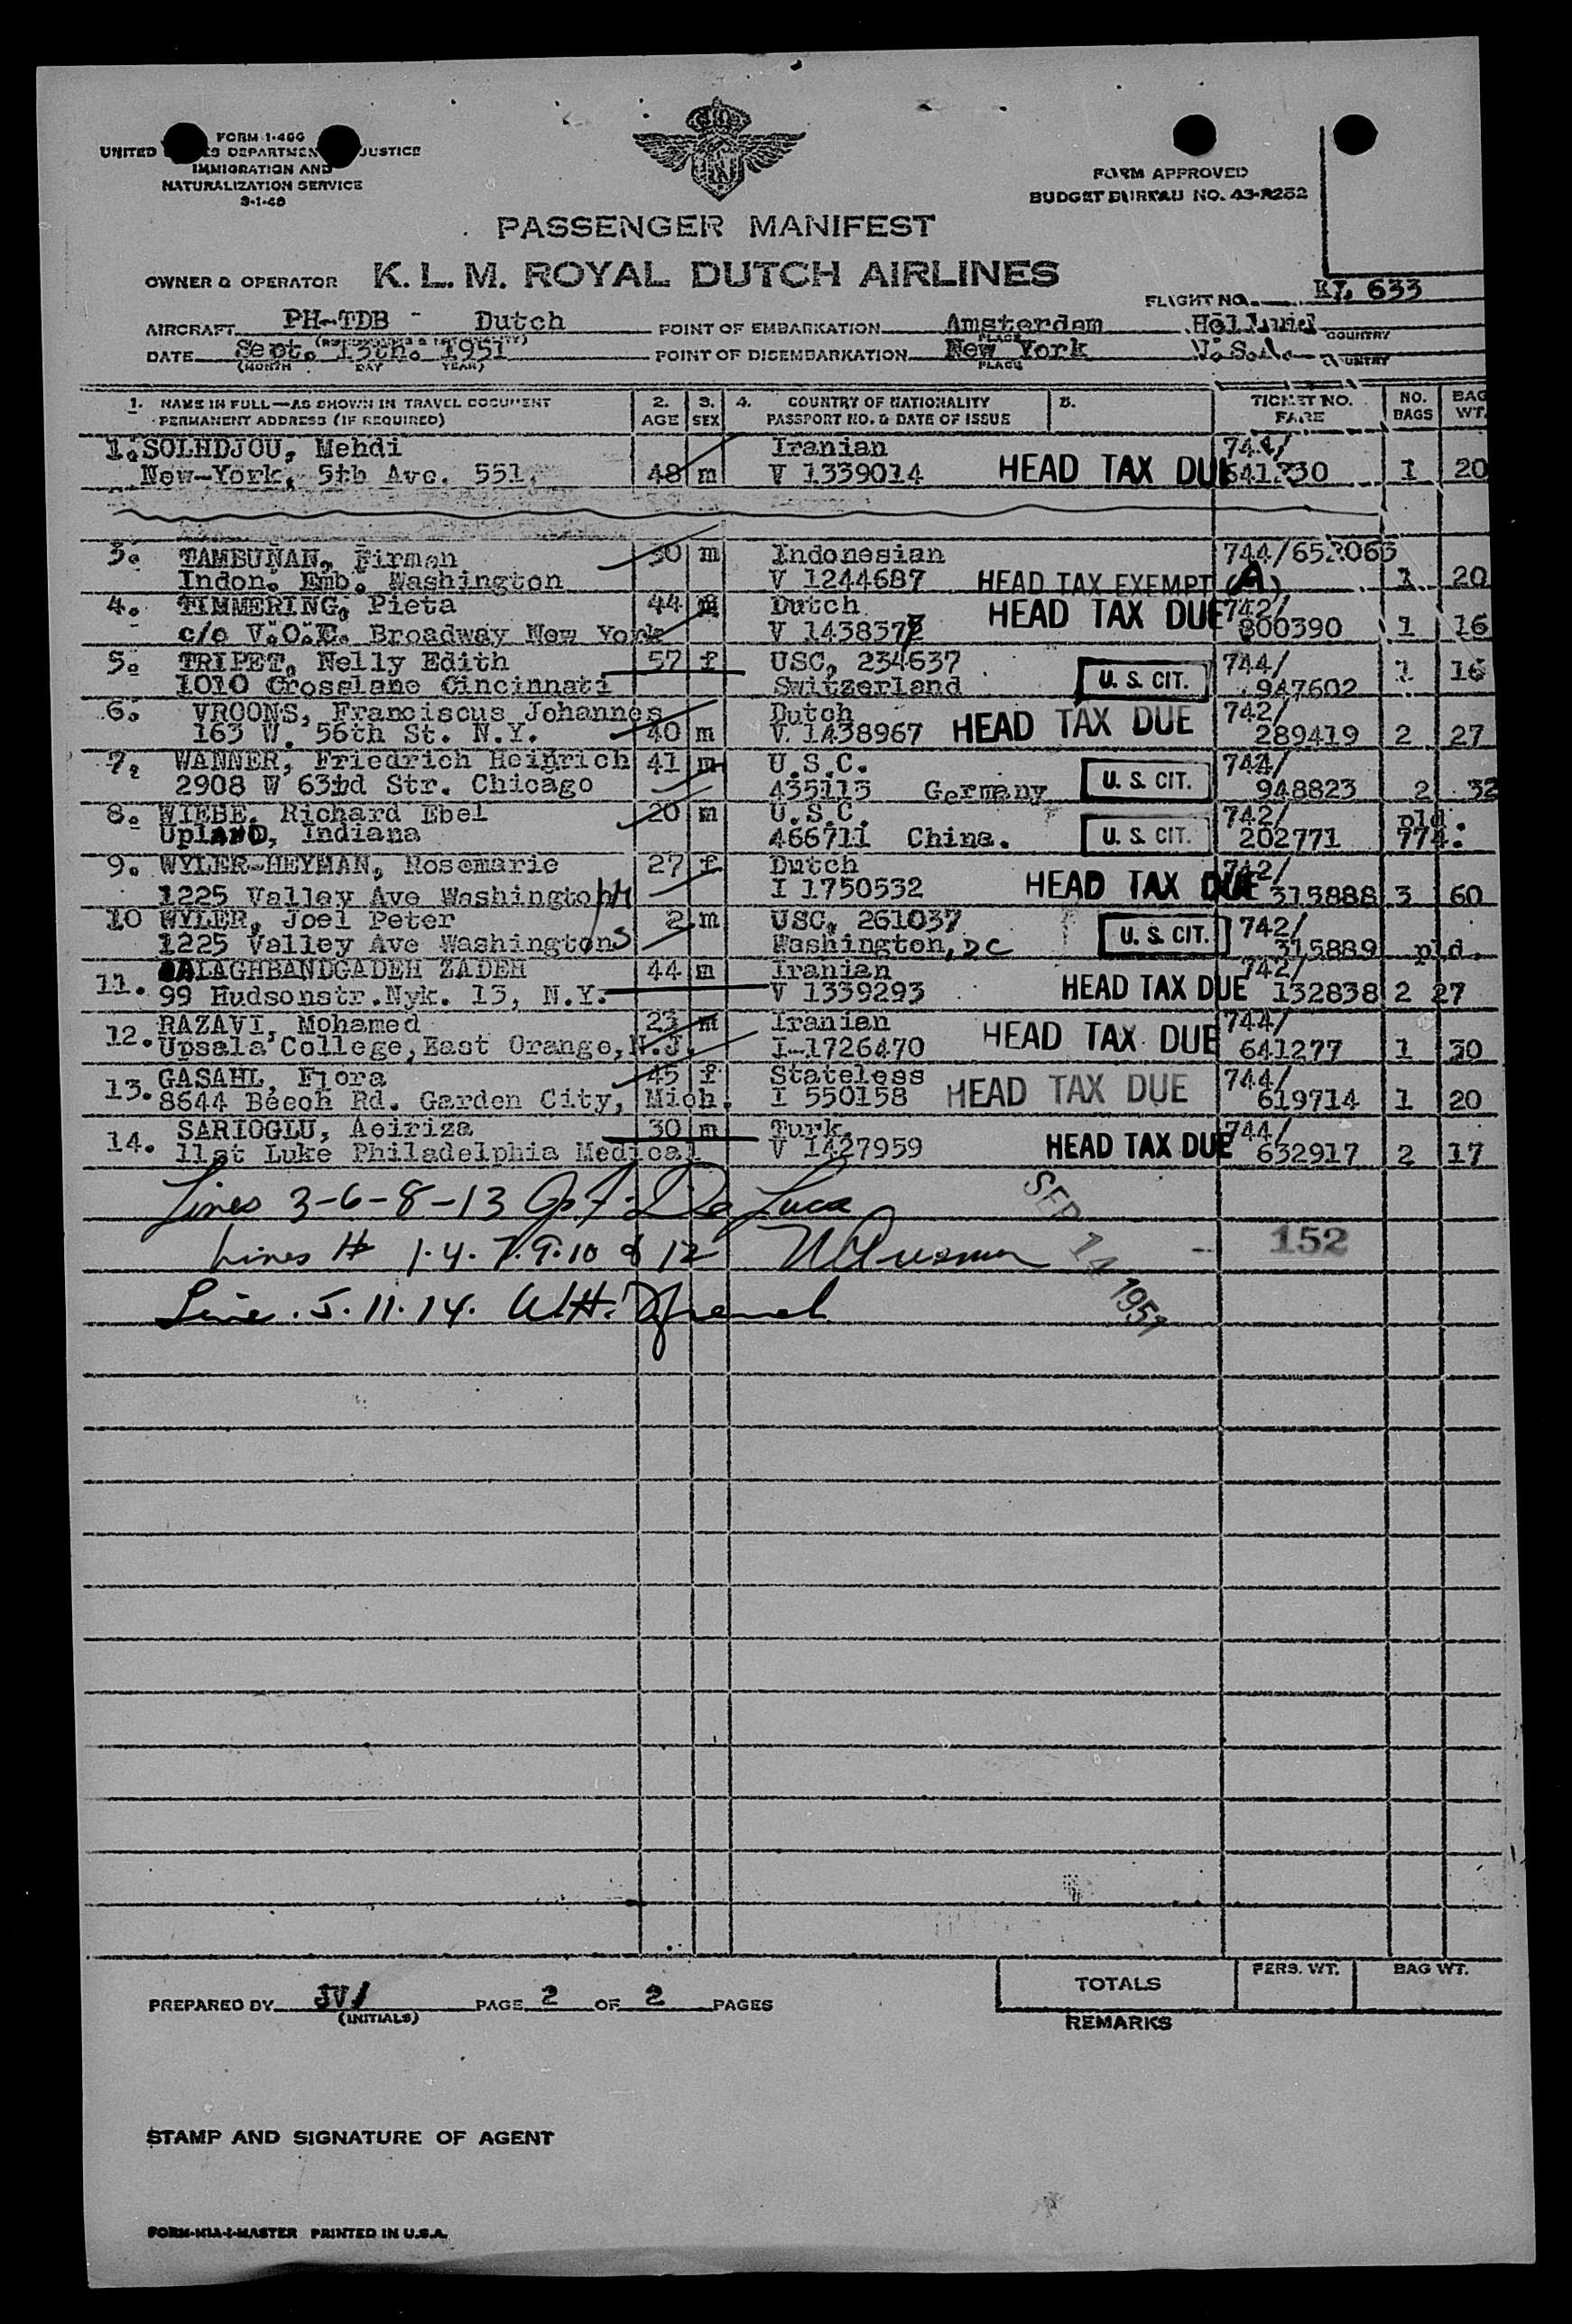 FORM I-466
UNITED STATES DEPARTMENT JUSTICE
IMMIGRATION AND
NATURALIZATION SERVICE
FORM APPROVED
BUDGET BUREAU NO. 43-R252
PASSENGER MANIFEST
OWNER & OPERATOR K. L. M. ROYAL DUTCH AIRLINES
FLIGHT NO. KL 633
AIRCRAFT PH-TDB - Dutch POINT OF EMBARKATION Amsterdam Holland COUNTRY
DATE Sept. 13th. 1951 POINT OF DISEMBARKATION New York U.S.A. COUNTRY
(MONTH DAY YEAR) PLACE
1. NAME IN FULL—AS SHOWN IN TRAVEL DOCUMENT 2. 3. 4. COUNTRY OF NATIONALITY 5. TICKET NO. NO. BAG
PERMANENT ADDRESS (IF REQUIRED) AGE SEX PASSPORT NO. & DATE OF ISSUE FARE BAGS WT.
1. SOLHDJOU, Mehdi Iranian 744/
New-York, 5th Ave. 551. 48 m V 1339014 HEAD TAX DUE 1 20
3. TAMBUNAN, Firman 30 m Indonesian
Indon. Emb. Washington V 1244687 HEAD TAX EXEMPT (A) 1 20
4. TIMMERING, Pieta 44 Dutch 742/
c/o V.O.E. Broadway New York V 1438378 HEAD TAX DUE 800390 1 16
5. TRIPET, Nelly Edith 57 f USC, 234637 744/ 1 16
1010 Crosslane Cincinnati Switzerland U. S. CIT. 947602
6. VROONS, Franciscus Johannes Dutch 742/
163 W. 56th St. N.Y. 40 m V. 1438967 HEAD TAX DUE 289419 2 27
7. WANNER, Friedrich Heinrich 41 m U.S.C. 744/
2908 W 63rd Str. Chicago 435113 Germany U. S. CIT. 948823 2 32
8. WIEBE, Richard Ebel 20 m U.S.C. 742/ pld.
UplAND, Indiana 466711 China. U. S. CIT. 202771 774.
9. WYLER-HEYMAN, Rosemarie 27 f Dutch 742/
1225 Valley Ave Washington I 1750532 HEAD TAX DUE 315888 3 60
10 WYLER, Joel Peter 2 m USC, 261037 742/
1225 Valley Ave Washington Washington, DC U. S. CIT. 315889 pld.
11. BALAGHBANDGADEH ZADEH 44 m Iranian 742/
99 Hudsonstr. Nyk. 13, N.Y. V 1339293 HEAD TAX DUE 132838 2 27
12. RAZAVI, Mohamed 23 m Iranian 744/
Upsala College, East Orange, N.J. I-1726470 HEAD TAX DUE 641277 1 30
13. GASAHL, Flora 45 f Stateless 744/
8644 Beech Rd. Garden City, Mich. I 550158 HEAD TAX DUE 619714 1 20
14. SARIOGLU, Aeiriza 30 m Turk. 744/
11st Luke Philadelphia Medical V 1427959 HEAD TAX DUE 632917 2 17
Lines 3-6-8-13 De Luca
Lines # 1.4.7.9.10 & 12 152
SEP 14 1951
Line . 5. 11. 14. W.H. French
TOTALS PERS. WT. BAG WT.
PREPARED BY JV/ PAGE 2 OF 2 PAGES
(INITIALS) REMARKS
STAMP AND SIGNATURE OF AGENT
PRINTED IN U.S.A.